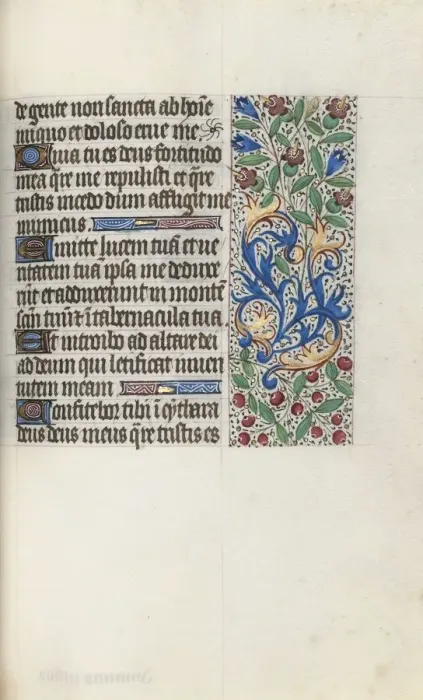 de gente non sancta ab hoīe
iniquo et doloso erue me
Quia tu es deus fortitudo
mea q̄re me repulisti et q̄re
tristis incedo dum affligit me
inimicus
Emitte lucem tuā et ue
ritatem tuā ipsa me deduxe
rūt et adduxerunt in monte
scm̄ tuū et ī tabernacula tua
Et introibo ad altare dei
ad deum qui letificat iuuen
tutem meam
Confitebor tibi ī cythara
deus deus meus q̄re tristis es